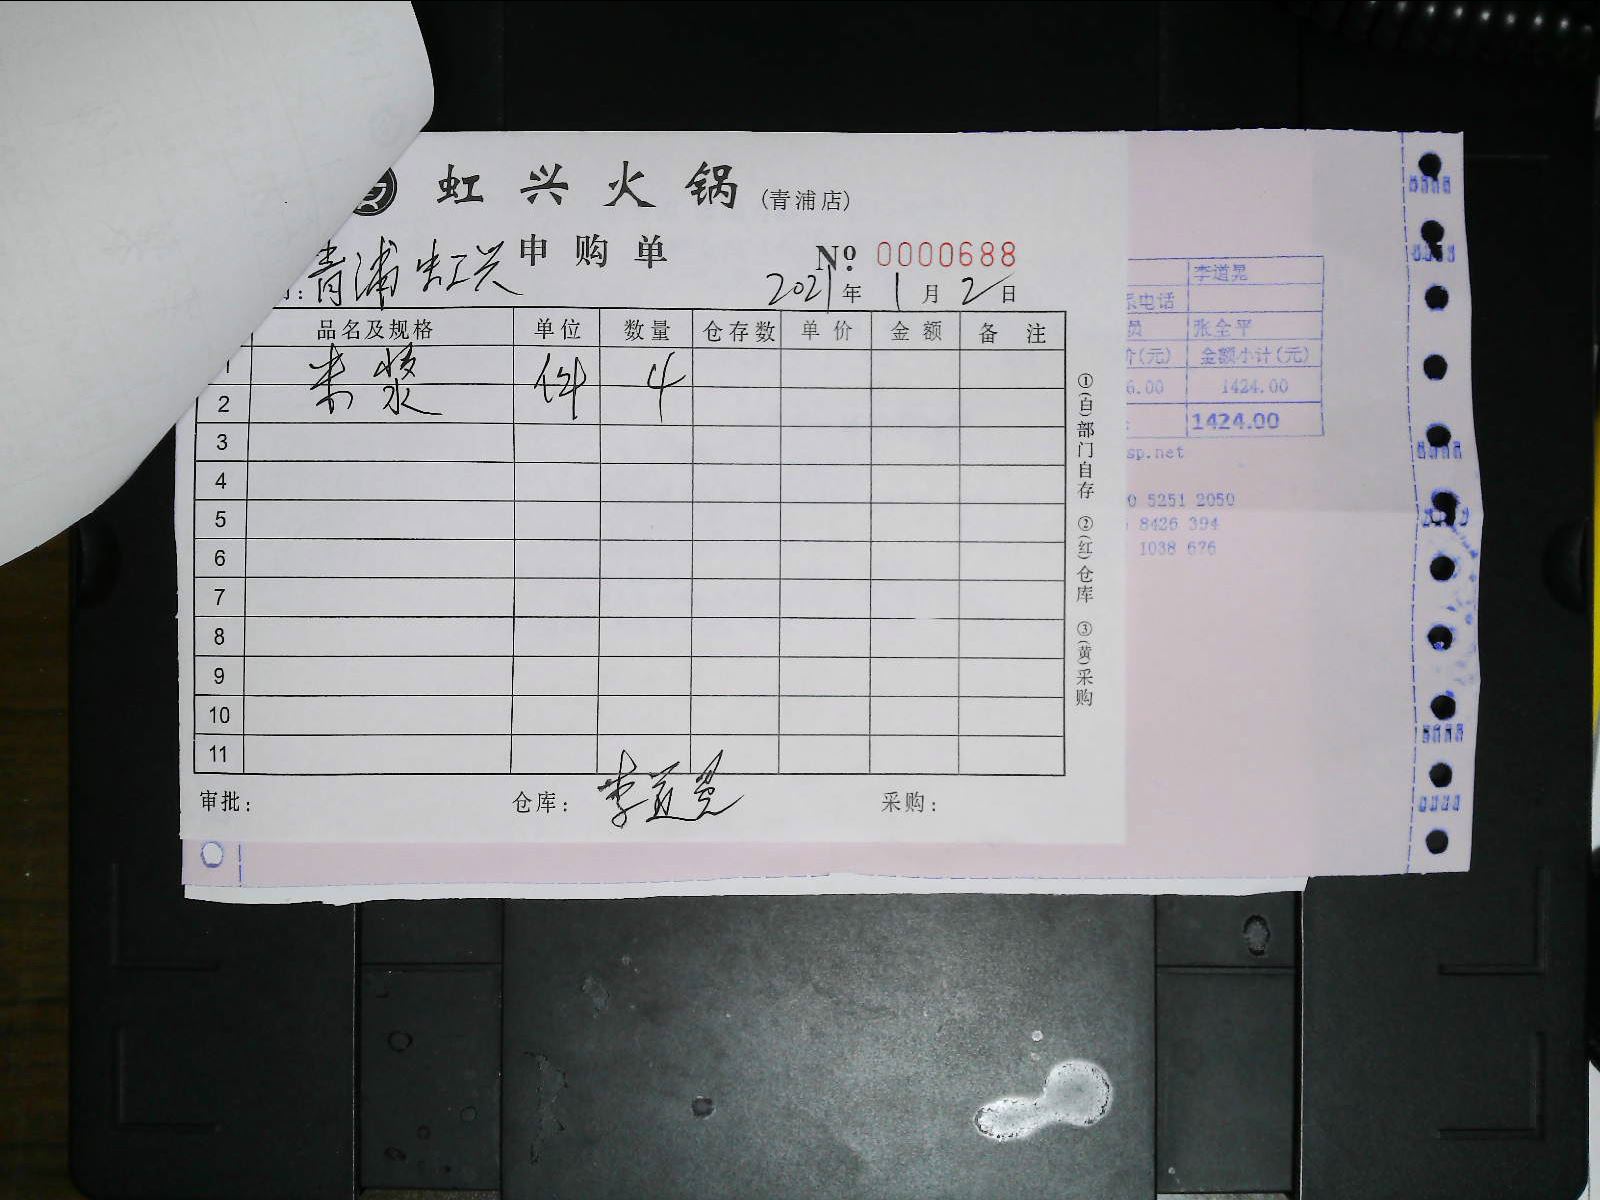 虹兴火锅(青浦店)
申购单 № 0000688
青浦虹兴 2021年1月2日
品名及规格 单位 数量 仓存数 单价 金额 备注
1
米浆 件 4
2
3
4
5
6
7
8
9
10
11
审批： 仓库：李道晃 采购：
①(白)部门自存 ②(红)仓库 ③(黄)采购
李道晃
系电话
员 张全平
价(元) 金额小计(元)
6.00 1424.00
1424.00
sp.net
0 5251 2050
8426 394
1038 676